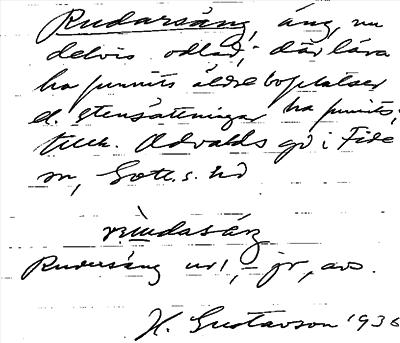 Rudarsäng, äng, nu
delvis odlad; där lära
ha funnits äldre boplatser
el. stensättningar ha funnits;
tillh. Advalds gd i Fide
sn, Gotl. s. hd
Rudarsäng
H. Gustavson 1936